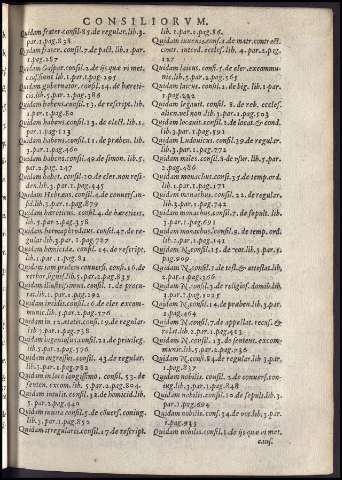 CONSILIORVM.
Quidam frater consil.85.de regular.lib.3.
par.1.pag.838
Quidam frater consil.7.de pact.lib.1.par.
1.pag.187
Quidam Gaspar consil.2.de ijs quæ vi met.
causs.siunt lib.1.par.1.pag.295
Quidam gubernator consil.14.de hæreti-
cis.lib.5.par.2.pag.386
Quidam habens consil.13.de rescript.lib.
1.par.1.pag.80
Quidam habens consil.13.de elect.lib.1.
par.1.pag.113
Quidam habens consil.11.de præben.lib.
3.par.1.pag.460
Quidam habens consil.49.de simon.lib.5.
par.2.pag.247
Quidam habet consil.10.de cler.non resi-
den.lib.3.par.1.pag.445
Quidam Hebræus consil.4.de conuers.in-
fid.lib.3.par.1.pag.879
Quidam hæreticus consil.4.de hæreticis,
lib.5.par.2.pag.356
Quidam hermophroditus consil.47.de re-
gular.lib.3.par.1.pag.787
Quidam homicida consil.14.de rescript.
lib.1.par.1.pag.81
Quidam iam pridem conuersi consil.26.de
verbor.signif.lib.5.par.2.pag.835
Quidam illustrissimus consil.1.de procu-
rat.lib.1.par.1.pag.292
Quidam inuidus consil.16.de elect. excom-
munic.lib.5.par.2.pag.576
Quidam in 12.ætate consil.19.de regular.
lib.3.par.1.pag.738
Quidam ingeniosus consil.21.de priuileg.
lib.5.par.2.pag.576
Quidam ingressus consil.43.de regular.
lib.3.par.1.pag.782
Quidam incisus longissimo consil. 53.de
senten.excom.lib.5.par.2.pag.804.
Quidam inuitis consil.38.de homicid.lib.
5.par.2.pag.440
Quidam inuitus consil.5.de conuers.coniug.
lib.3.par.1.pag.852
Quidam irregularis consil.17.de rescript.
lib.1.par.1.pag.86.
Quidam iuuenis consil.1.de matr.contract.
contr. interd. eccles.lib.4.par.2.pag.
127
Quidam laicus consil.5.de cler.excommu-
nic.lib.5.par.2.pag.563
Quidam laicus consil.2.de big. lib.1.par.
1.pag.222
Quidam legauit consil.8.de reb. eccles.
alien.vel non.lib.3.par.1.pag.503
Quidam locauit consil.2.de locat.& cond.
lib.3.par.1.pag.592
Quidam Ludouicus consil.39.de regular.
lib.3.par.1.pag.772
Quidam miles consil.4.de vsur.lib.5.par.
2.pag.486
Quidam monachus consil.35.de temp.ord.
lib.1.par.1.pag.171
Quidam monachus consil.22.de regular.
lib.3.par.1.pag.742
Quidam monachus consil.7.de sepult.lib.
3.par.1.pag.691
Quidam monachus consil.9.de temp.ord.
lib.1.par.1.pag.141
Quidam N.consil.15.de vot.lib.3.par.1.
pag.909
Quidam N.consil.1.de test.& attestat.lib.
2.par.1.pag.356
Quidam N.consil.3.de religios.domib.lib.
3.par.1.pag.1025
Quidam N.consil.14.de præben.lib.3.par.
1.pag.464
Quidam N.consil.7.de appellat. recus.&
relat.lib.2.par.1.pag.412
Quidam N.consil.13.de senten.excom-
munic.lib.5.par.2.pag.736
Quidam N.consil.84.de regular.lib.3.par.
1.pag.837
Quidam nobilis consil.2.de conuers.con-
iug.lib.3.par.1.pag.848
Quidam nobilis consil.10.de sepult.lib.
3.par.1.pag.694
Quidam nobilis consil.34.de vot.lib.3.par.
1.pag.933
Quidam nobilis consil.1.de ijs quæ vi met.
caus.